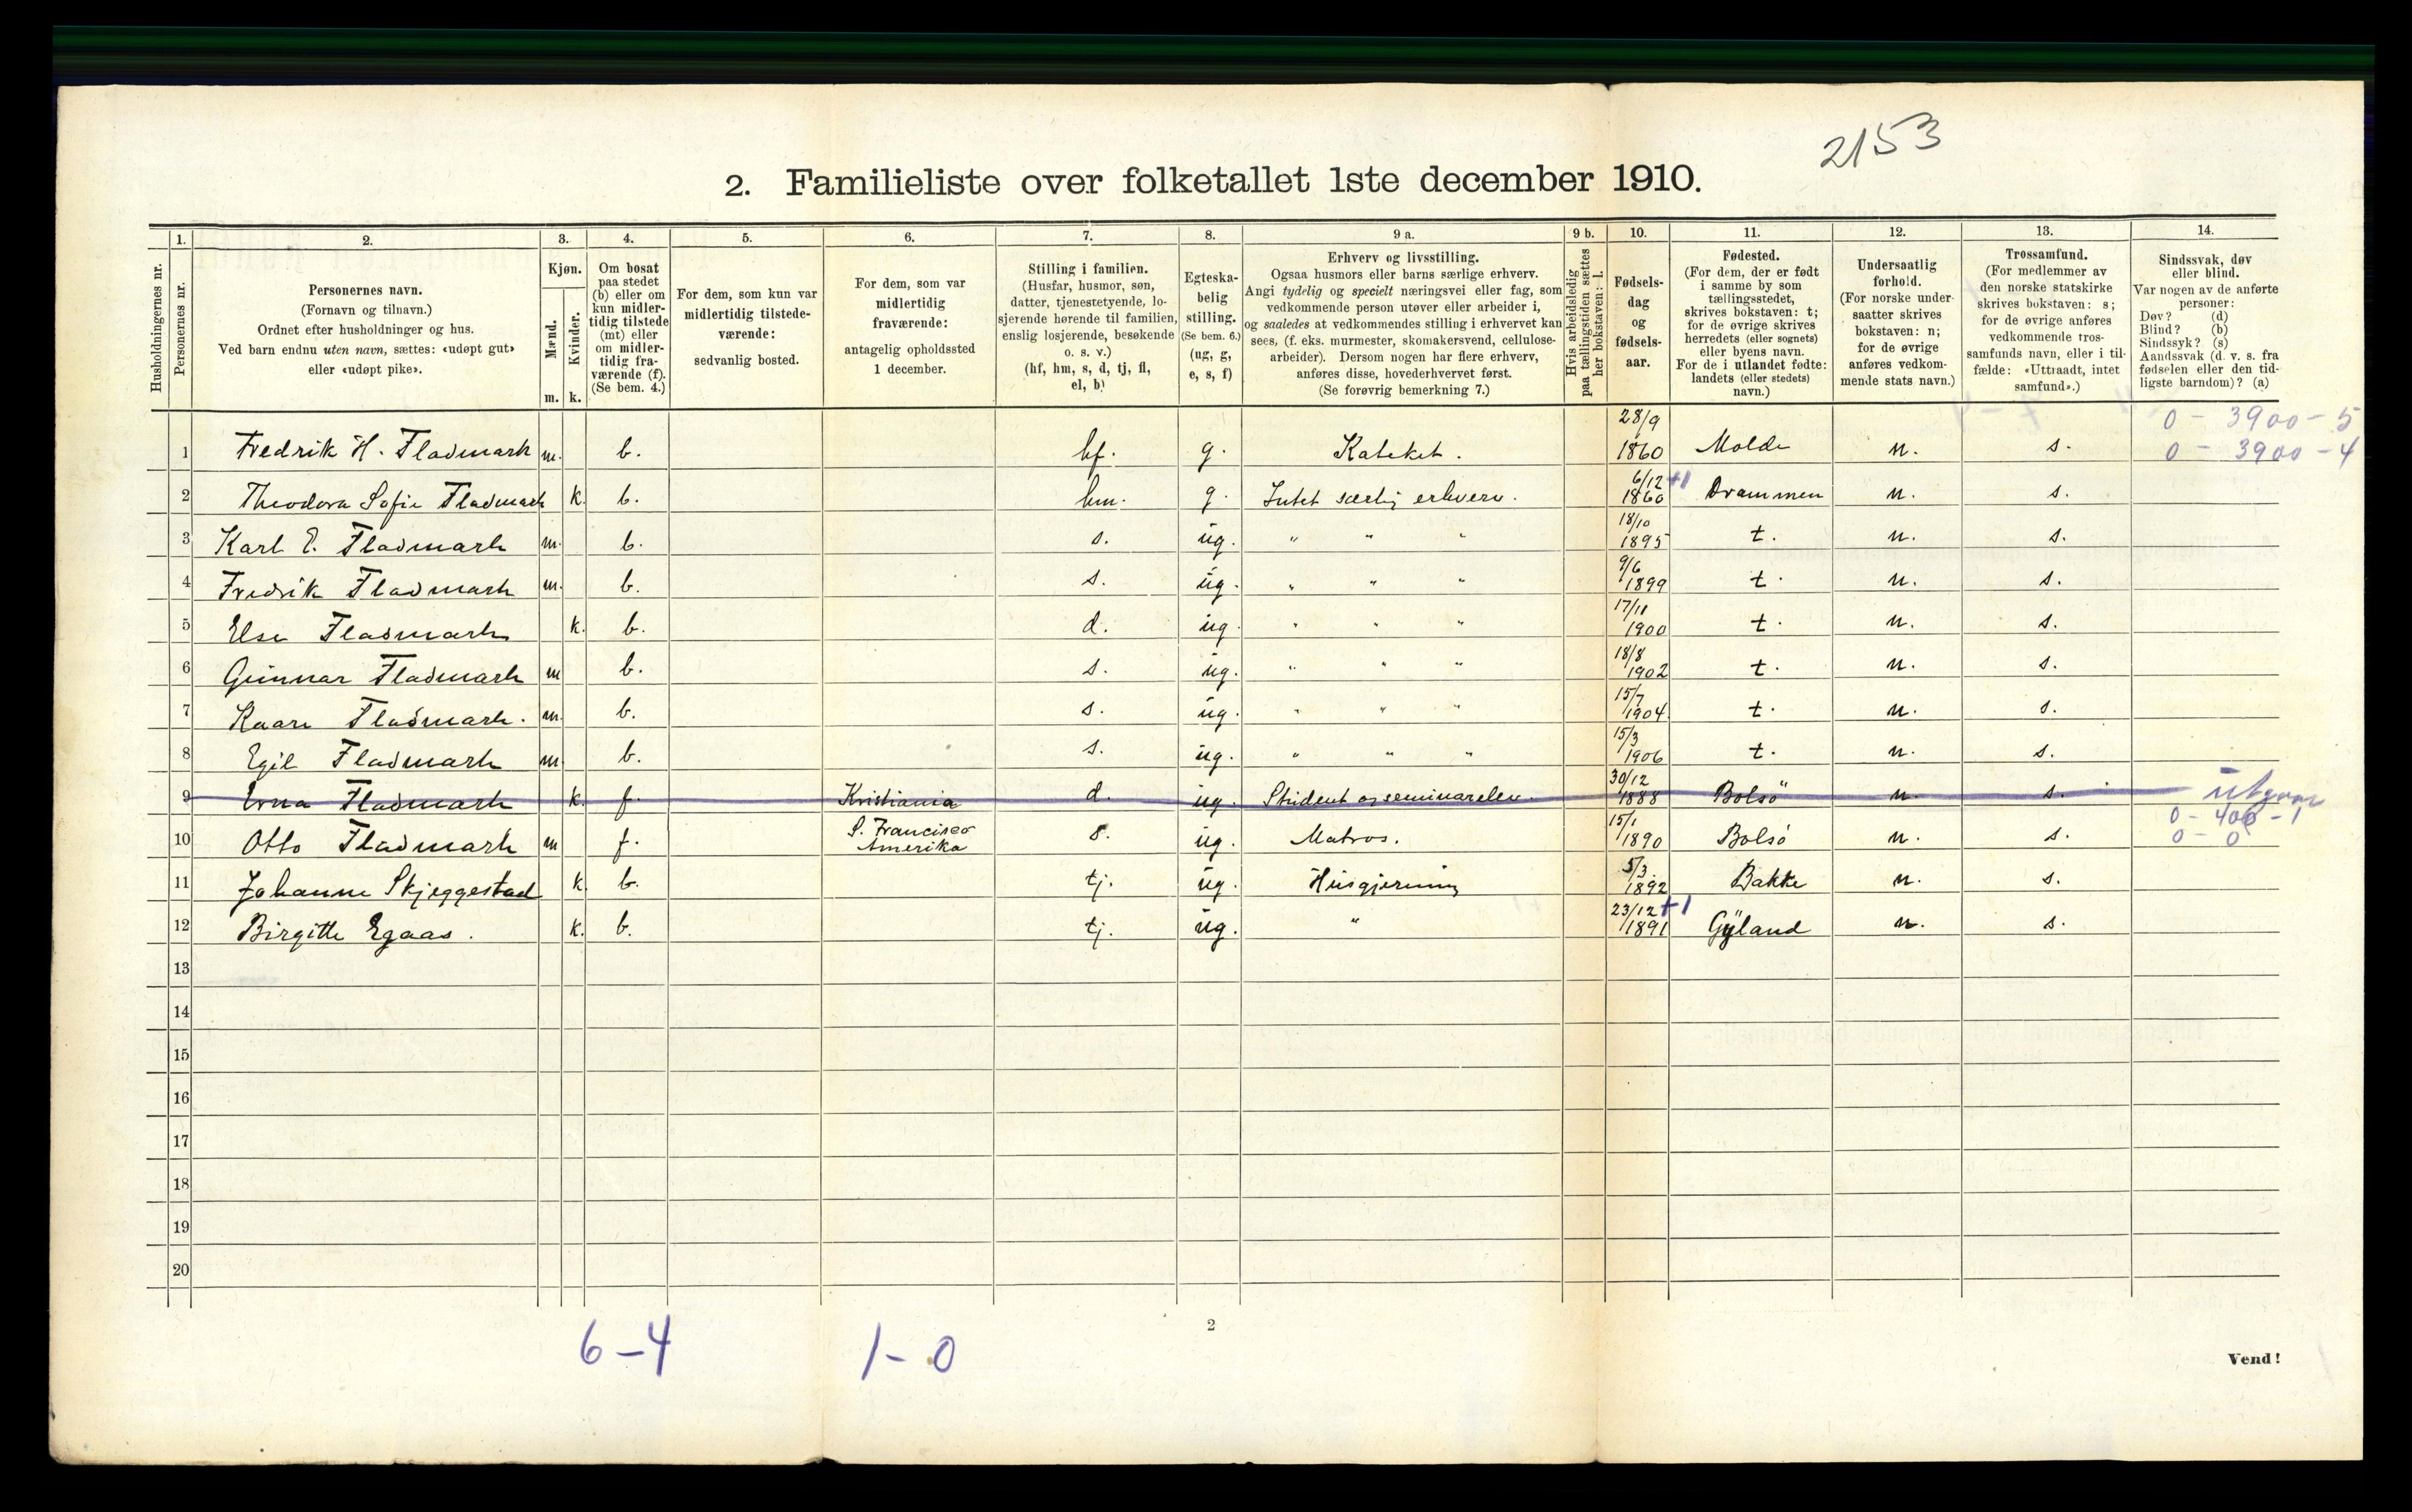 2153
2. Familieliste over folketallet 1ste december 1910.
Husholdningernes nr.
1.
Personernes nr.
2.
Personernes navn.
(Fornavn og tilnavn.)
Ordnet efter husholdninger og hus.
Ved barn endnu uten navn, sættes: «udøpt gut»
eller «udøpt pike».
3.
Kjøn.
Mænd.
Kvinder.
m. k.
4.
Om bosat
paa stedet
(b) eller om
kun midler-
tidig tilstede
(mt) eller
om midler-
tidig fra-
værende (f).
(Se bem. 4.)
5.
For dem, som kun var
midlertidig tilstede-
værende:
sedvanlig bosted.
6.
For dem, som var
midlertidig
fraværende:
antagelig opholdssted
1 december.
7.
Stilling i familien.
(Husfar, husmor, søn,
datter, tjenestetyende, lo-
sjerende hørende til familien,
enslig losjerende, besøkende
o. s. v.)
(hf, hm, s, d, tj, fl,
el, b)
8.
Egteska-
belig
stilling.
(Se bem. 6.)
(ug, g,
e, s, f)
9 a.
Erhverv og livsstilling.
Ogsaa husmors eller barns særlige erhverv.
Angi tydelig og specielt næringsvei eller fag, som
vedkommende person utøver eller arbeider i,
og saaledes at vedkommendes stilling i erhvervet kan
sees, (f. eks. murmester, skomakersvend, cellulose-
arbeider). Dersom nogen har flere erhverv,
anføres disse, hovederhvervet først.
(Se forøvrig bemerkning 7.)
9 b.
Hvis arbeidsledig
paa tællingstiden sættes
her bokstaven: l.
10.
Fødsels-
dag
og
fødsels-
aar.
11.
Fødested.
(For dem, der er født
i samme by som
tællingsstedet,
skrives bokstaven: t;
for de øvrige skrives
herredets (eller sognets)
eller byens navn.
For de i utlandet fødte:
landets (eller stedets)
navn.)
12.
Undersaatlig
forhold.
(For norske under-
saatter skrives
bokstaven: n;
for de øvrige
anføres vedkom-
mende stats navn.)
13.
Trossamfund.
(For medlemmer av
den norske statskirke
skrives bokstaven: s;
for de øvrige anføres
vedkommende tros-
samfunds navn, eller i til-
fælde: «Uttraadt, intet
samfund».)
14.
Sindssvak, døv
eller blind.
Var nogen av de anførte
personer:
Døv? (d)
Blind? (b)
Sindssyk? (s)
Aandssvak (d. v. s. fra
fødselen eller den tid-
ligste barndom)? (a)
0 - 3900 - 5
0 - 3900 - 4
1 Fredrik H. Fladmark m. b. hf. g. Kateket. 28/9 1860 Molde n. s.
2 Theodora Sofie Fladmark k. b. hm. g. Intet særlig erhverv. 6/12 1860 +1 Drammen n. s.
3 Karl E. Fladmark m. b. s. ug. " " " 18/10 1895 t. n. s.
4 Fredrik Fladmark m. b. s. ug. " " " 9/6 1899 t. n. s.
5 Else Fladmark k. b. d. ug. " " " 17/11 1900 t. n. s.
6 Gunnar Fladmark m b. s. ug. " " " 18/8 1902 t. n. s.
7 Kaare Fladmark. m. b. s. ug. " " " 15/7 1904 t. n. s.
8 Egil Fladmark m. b. s. ug. " " " 15/3 1906 t. n. s.
9 Erna Fladmark k. f. Kristiania d. ug. Student og seminarelev. 30/12 1888 Bolsö n. s. utgaar
10 Otto Fladmark m f. S. Francisco Amerika s. ug. Matros. 15/1 1890 Bolsö n. s. 0 - 400 - 1
0 - 0
11 Johanne Skjeggestad k. b. tj. ug. Husgjerning 5/3 1892 Bakke n. s.
12 Birgitte Egaas. k. b. tj. ug. " 23/12 1891 +1 Gyland n. s.
13
14
15
16
17
18
19
20
6 - 4
1 - 0
2
Vend!